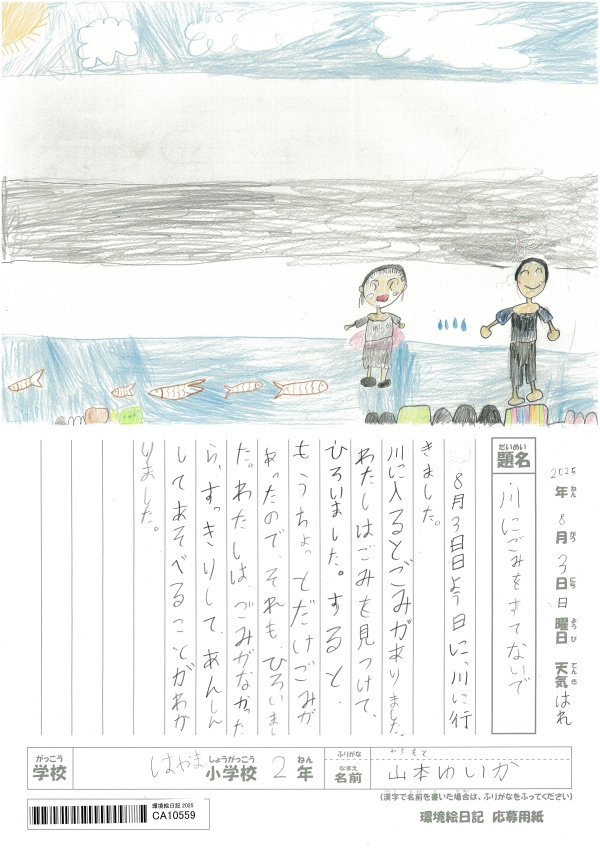 2025年ねん 8月がつ 3日にち 日曜日ようび 天気てんき はれ
だいめい
題名
川にごみをすてないで
8月3日日よう日に、川に行
きました。
川に入るとごみがありました。
わたしはごみを見つけて、
ひろいました。すると、
もうちょっとだけごみが
あったので、それも、ひろいまし
た。わたしは、ごみがなかった
ら、すっきりして、あんしん
してあそべることがわか
りました。
がっこう
学校
はやま小学校しょうがっこう 2年ねん
ふりがな
やまもと
なまえ
名前
山本ゆいか
(漢字で名前を書いた場合は、ふりがなをふってください)
環境絵日記 2025
CA10559
環境絵日記 応募用紙